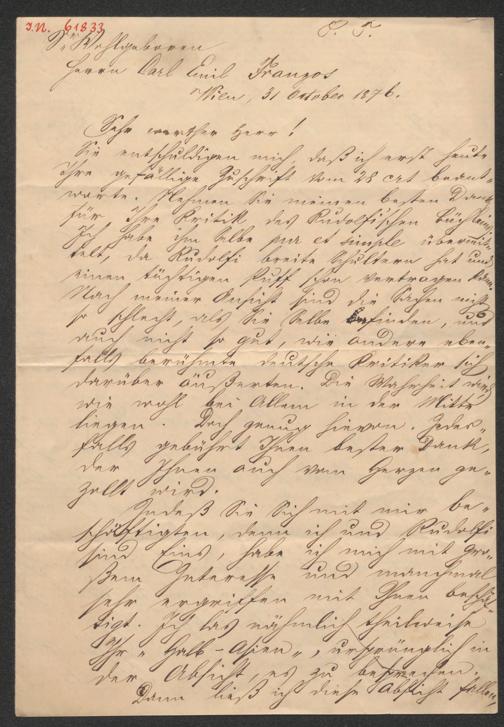 I.N. 61833
P. T.
Sr Wohlgeboren
Herrn Carl Emil Franzos
Wien, 31 October 1876.
Sehr werther Herr!
Sie entschuldigen mich, daß ich erst heute
Ihre gefällige Zuschrift vom 28 crt beant-
worte. Nehmen Sie meinen besten Dank
für Ihre Kritik des Rudolfi'schen
Ich habe ihm selbe pur et simple übermit-
telt, da Rudolfi breite Schultern hat und
einen tüchtigen Puff schon vertragen kann.
Nach meiner Ansicht sind die Sachen nicht
so schlecht, als Sie selbe befinden, und
auch nicht so gut, wie andere eben-
falls berühmte deutsche Kritiker sich
darüber äußerten. Die Wahrheit wird
wie wohl bei Allem in der Mitte
liegen. Doch genug hievon. Jedes-
falls gebührt Ihnen bester Dank,
der Ihnen auch vom Herzen ge-
zollt wird.
Indeß Sie Sich mit mir be-
schäftigten, denn ich und Rudolfi
sind Eins, habe ich mich mit gro-
ßem Interesse und manchmal
sehr ergriffen mit Ihnen beschäf-
tigt. Ich las nähmlich theilweise
Ihr „Halb-Asien", ursprünglich in
der Absicht, es zu besprechen.
Dann ließ ich diese Absicht fallen,